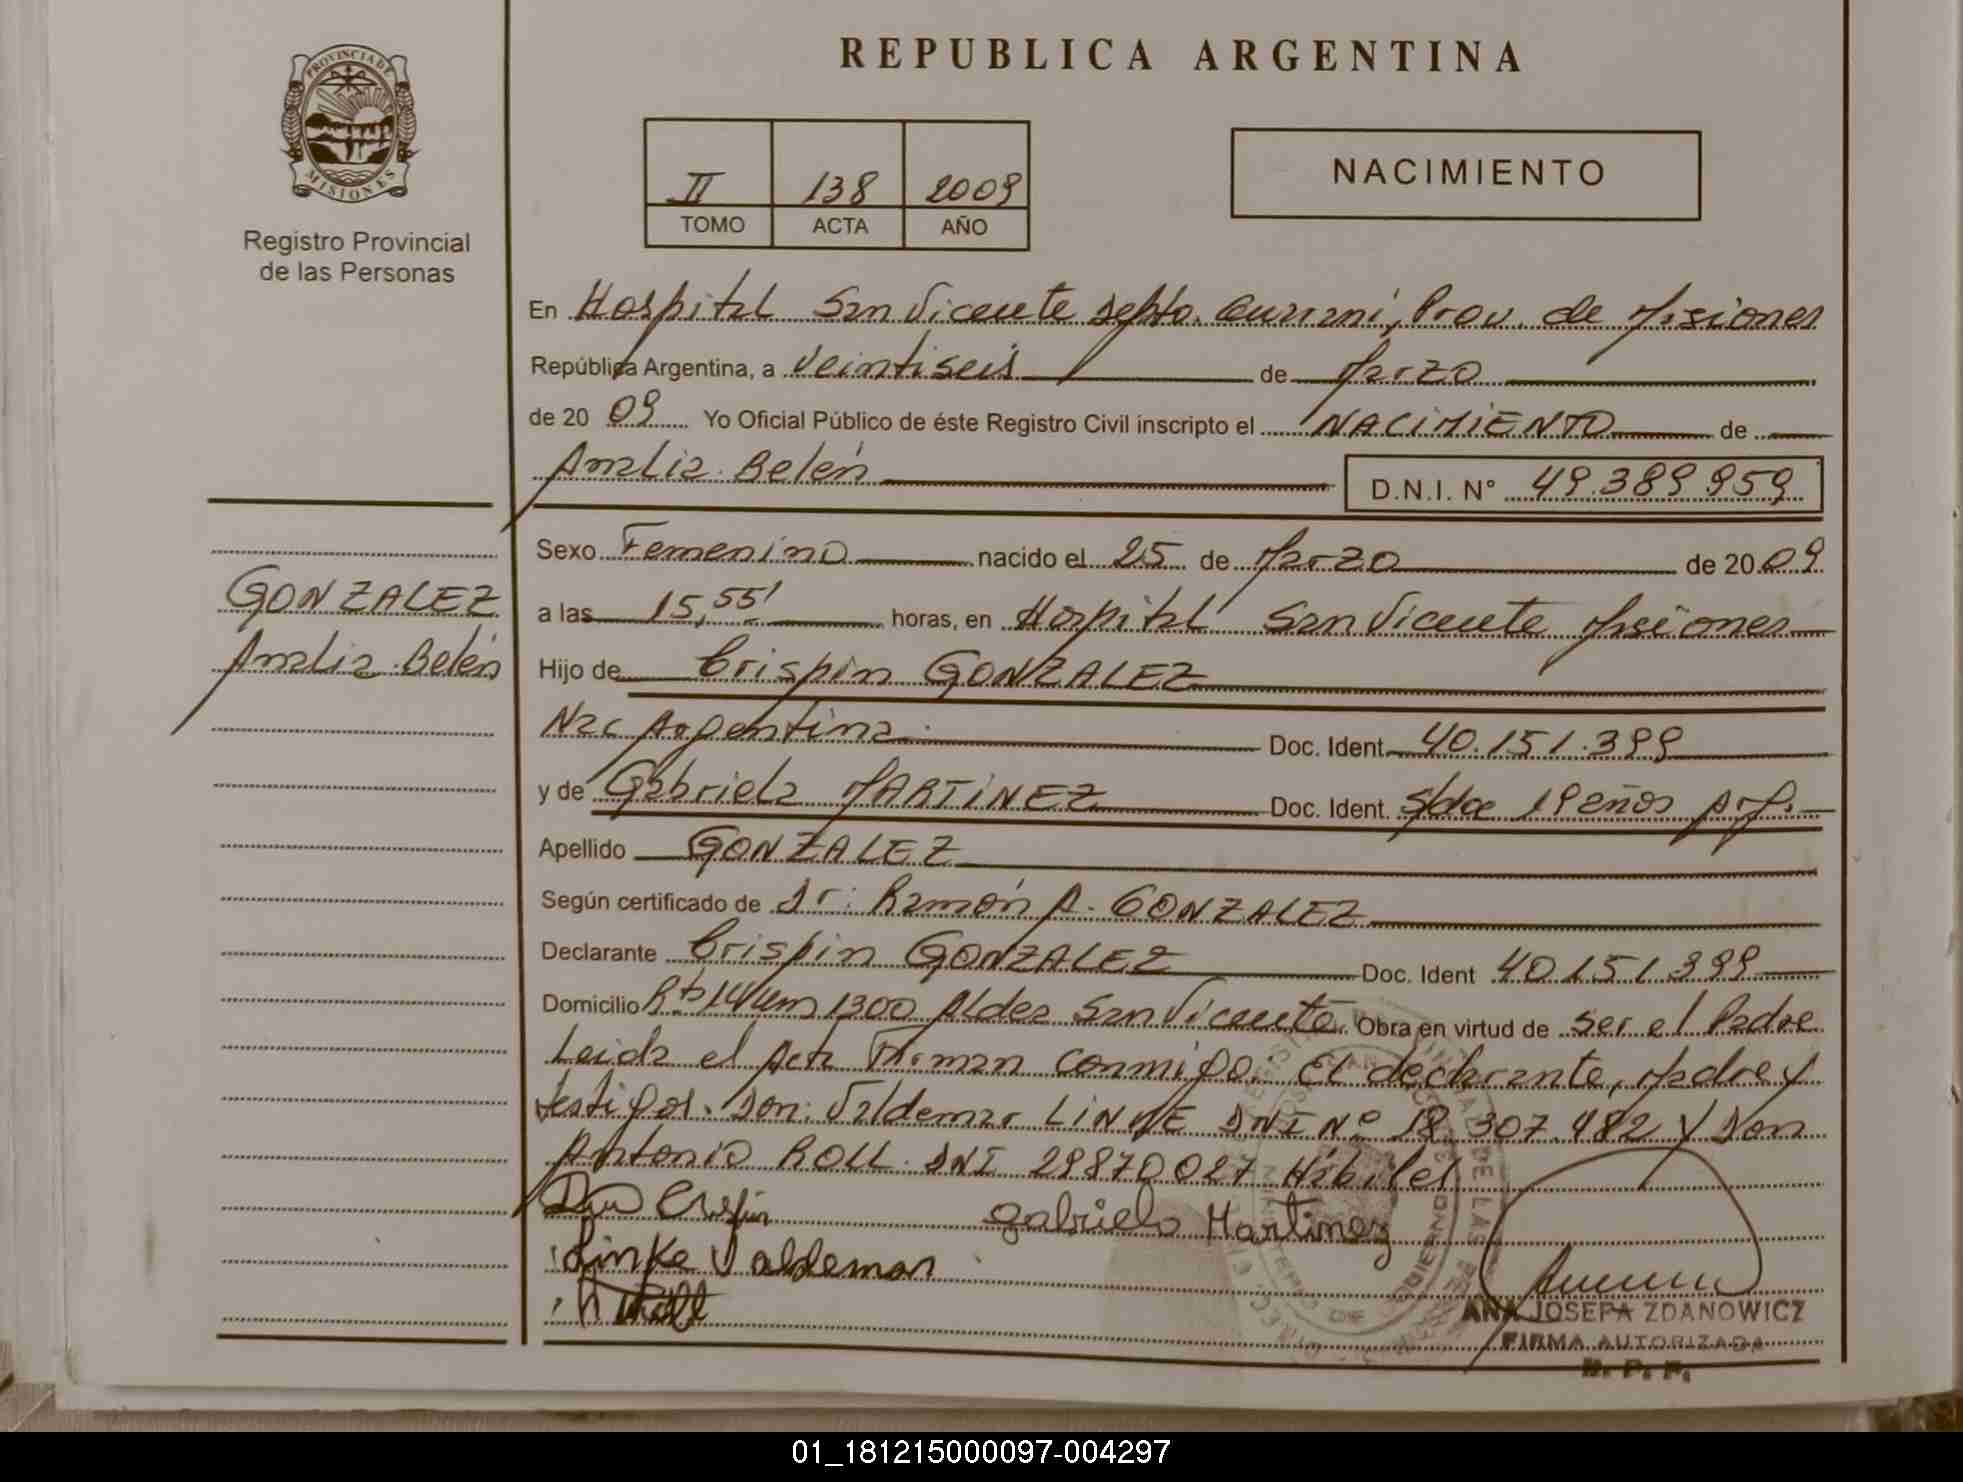 REPUBLICA ARGENTINA
PROVINCIA DE
MISIONES
Registro Provincial
de las Personas
II 138 2009
TOMO ACTA AÑO
NACIMIENTO
En Hospital San Vicente Depto. Guaraní, Prov. de Misiones
República Argentina, a Veintiseis de Marzo
de 20 09 Yo Oficial Público de éste Registro Civil inscripto el NACIMIENTO de
Amalia Belén D.N.I. N° 49.389.959
Sexo Femenino nacido el 25 de Marzo de 20 09
a las 15,55' horas, en Hospital San Vicente Misiones
GONZALEZ
Amalia Belén
Hijo de Crispin GONZALEZ
Nac Argentina Doc. Ident. 40.151.399
y de Gabriela MARTINEZ Doc. Ident. 19 años Arg.
Apellido GONZALEZ
Según certificado de Dr: Ramón A. GONZALEZ
Declarante Crispin GONZALEZ Doc. Ident 40.151.399
Domicilio Rta 14 Km 1300 Aldea San Vicente Obra en virtud de ser el Padre
Leida el Acta Firman conmigo: El declarante, Madre y
testigos. Don: Valdemar LINKE DNI Nº 18.307.482 y Don
Antonio ROLL DNI 29870027 Hábiles
Crispin Gabriela Martinez
Linke Valdemar
ANA JOSEFA ZDANOWICZ
FIRMA AUTORIZADA
R. P. P.
01_181215000097-004297